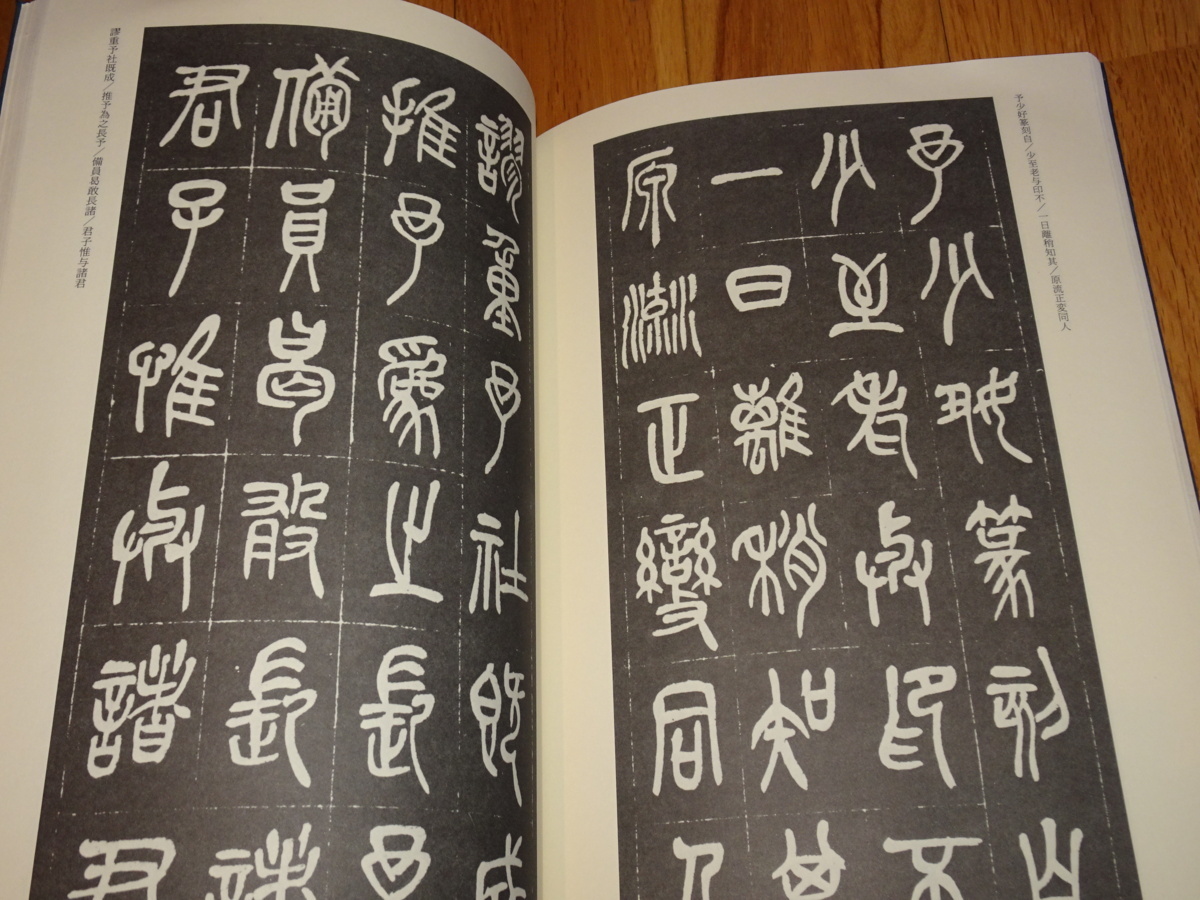 予少好篆刻自／少至老与印不／一日離稍知其／原流正変同人
予少好篆刻自
少至老与印不
一日離稍知其
原流正變同人
謬重予社既成
推予爲之長予
備員曷敢長諸
君子惟与諸君
謬重予社既成／推予為之長予／備員曷敢長諸／君子惟与諸君